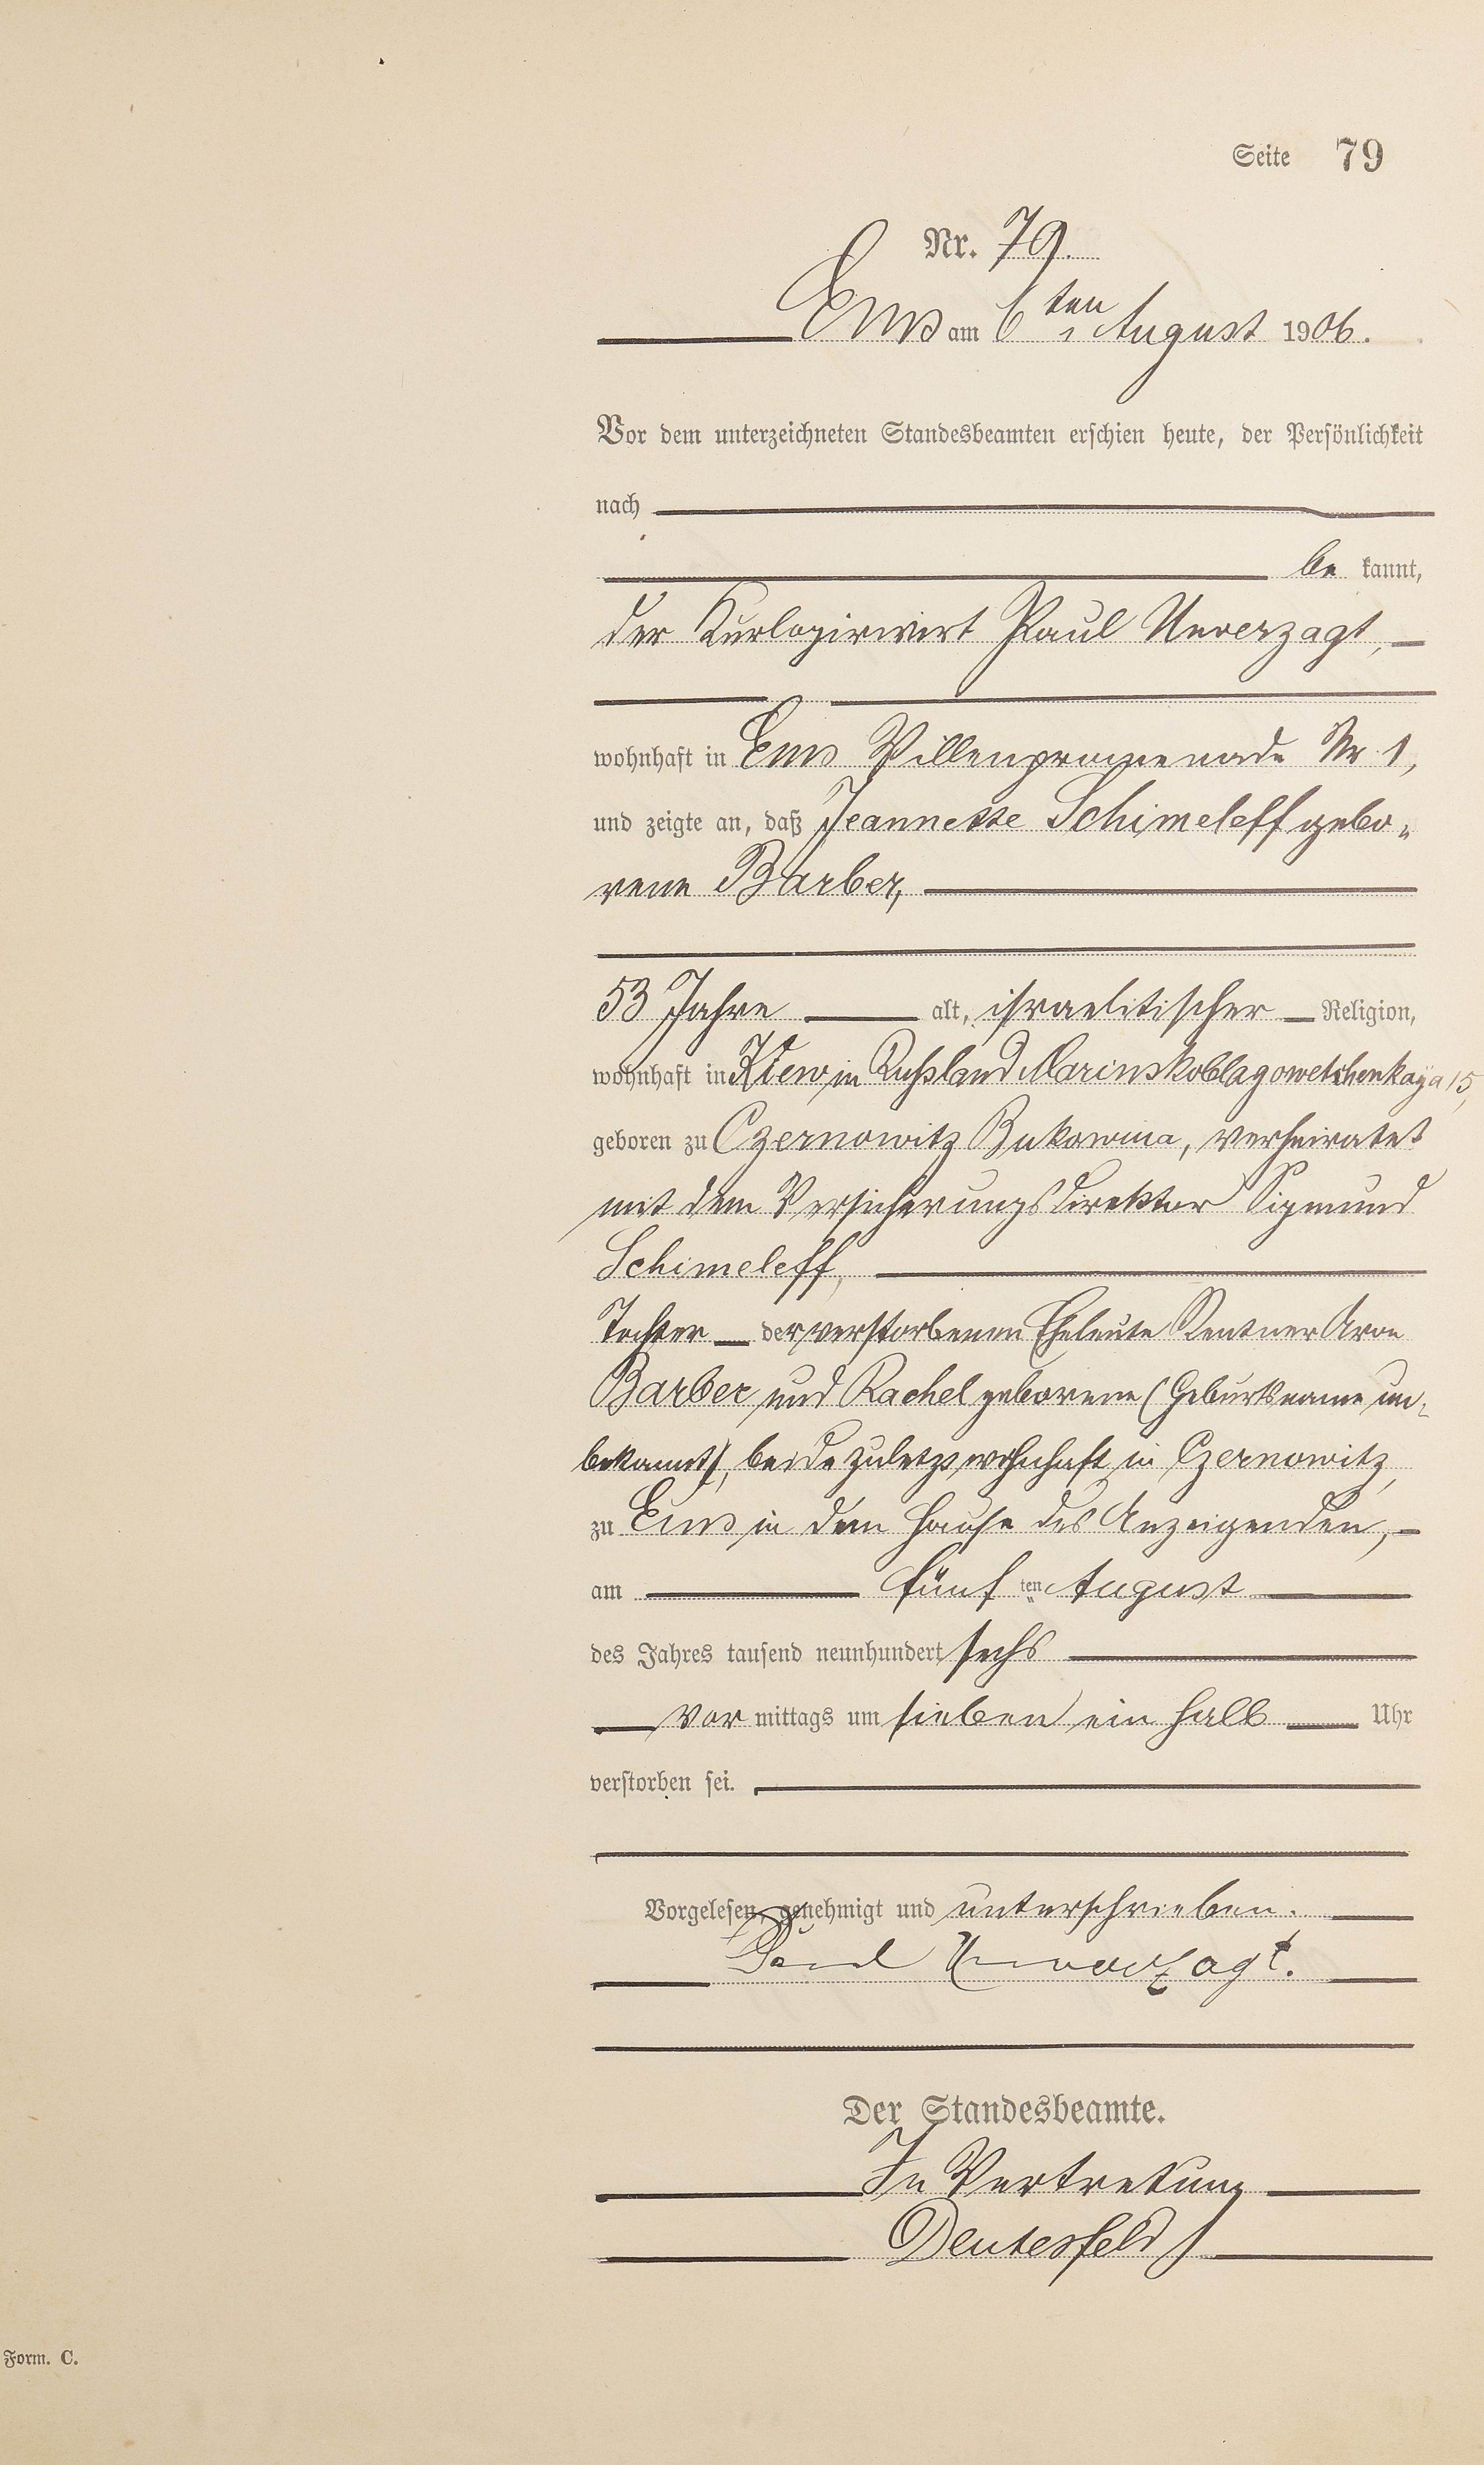 Seite 79
Nr. 79.
Ems am 6ten August 1906.
Vor dem unterzeichneten Standesbeamten erschien heute, der Persönlichkeit
nach
be kannt,
der Kurlogirwirt Paul Unverzagt,
wohnhaft in Ems Villenpromenade Nr 1,
und zeigte an, daß Jeannette Schimeleff gebo-
rene Barber,
53 Jahre alt, israelitischer Religion,
wohnhaft in Kiew in Rußland Marinskoblagowetschenkaya 15,
geboren zu Czernowitz Bukowina, verheiratet
mit dem Versicherungsdirektor Sigmund
Schimeleff,
Tochter der verstorbenen Eheleute Rentner Aron
Barber und Rachel geborene (Geburtsname un-
bekannt), beide zuletzt wohnhaft in Czernowitz,
zu Ems in dem Hause des Anzeigenden,
am fünf ten August
des Jahres tausend neunhundert sechs
vor mittags um sieben ein halb Uhr
verstorben sei.
Vorgelesen, genehmigt und unterschrieben.
Paul Unverzagt.
Der Standesbeamte.
In Vertretung
Deutesfeld
Form. C.